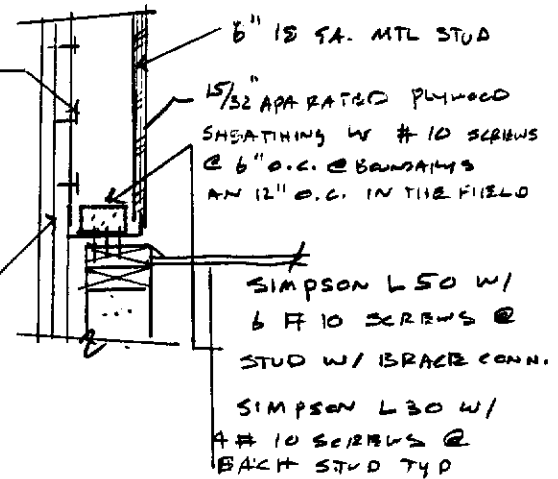 6" 18 GA. MTL STUD
15/32" APA RATED PLYWOOD
SHEATHING W # 10 SCREWS
@ 6" O.C. @ BOUNDARYS
AN 12" O.C. IN THE FIELD
SIMPSON L50 W/
6 # 10 SCREWS @
STUD W/ BRACE CONN.
SIMPSON L30 W/
4 # 10 SCREWS @
EACH STUD TYP